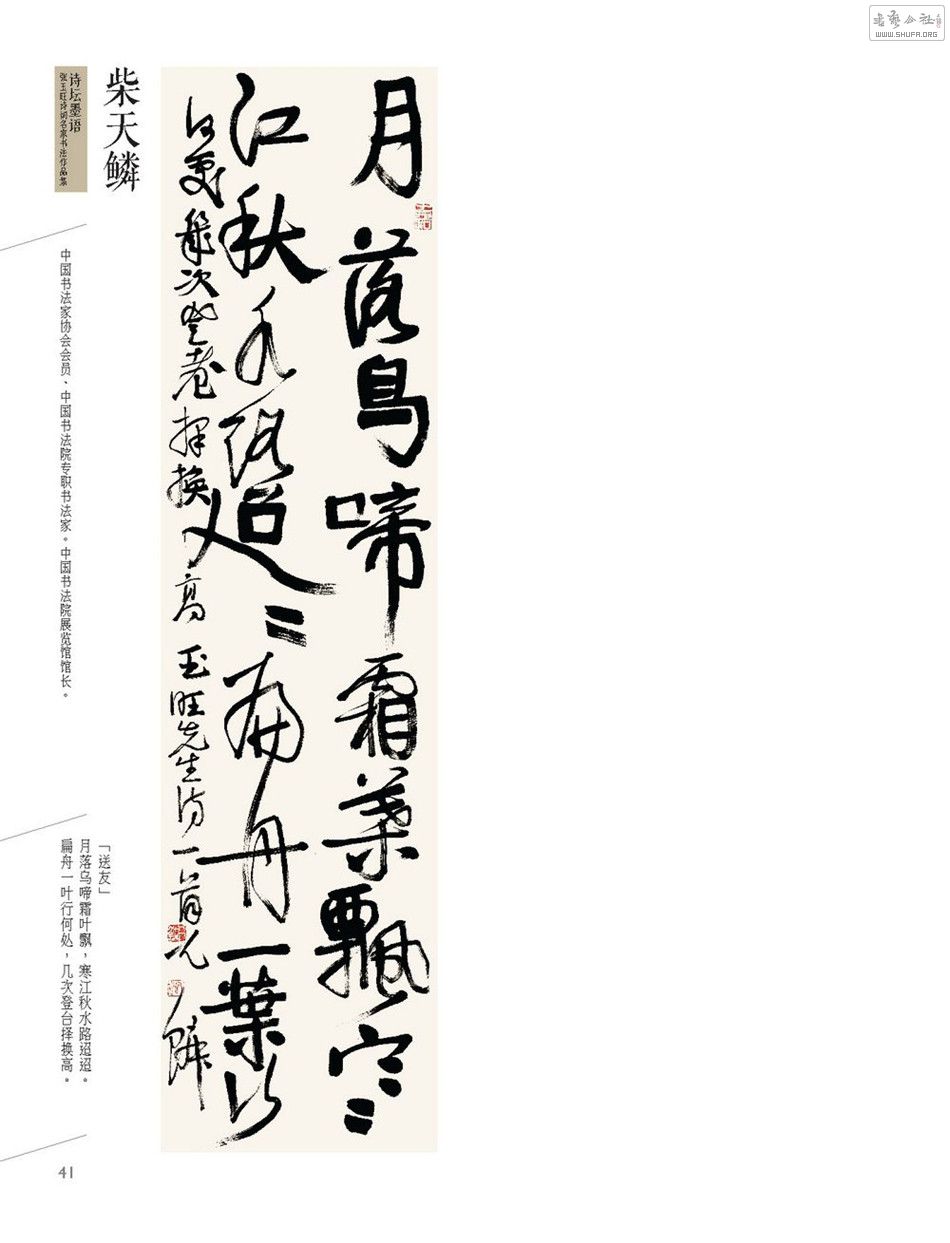 WWW.SHUFA.ORG
柴天鳞
诗坛墨语
张玉旺诗词名家书法作品集
中国书法家协会会员、中国书法院专职书法家。中国书法院展览馆馆长。
月落乌啼霜葉飘寒
江秋水路迢〻扁舟一葉行
何处几次登台择换高 玉旺先生诗一首 天鳞
「送友」
月落乌啼霜叶飘，寒江秋水路迢迢。
扁舟一叶行何处，几次登台择换高。
41